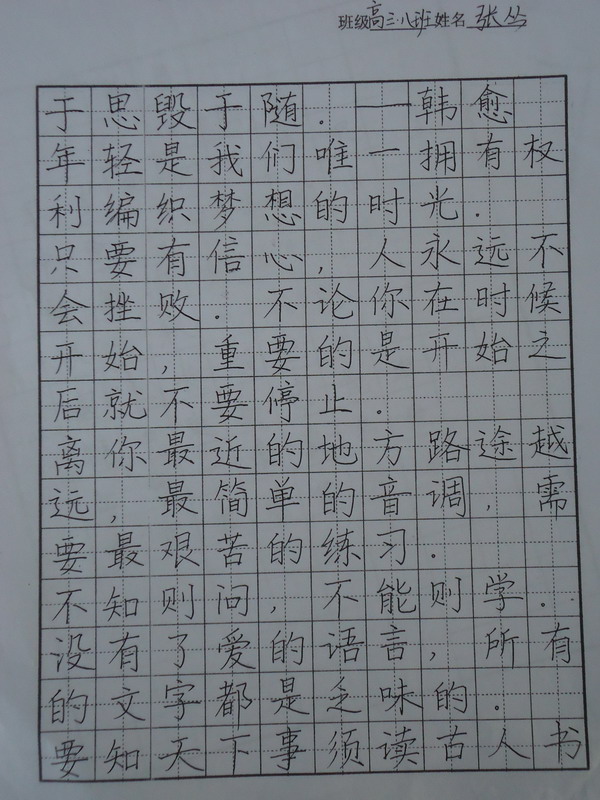 班级高三·八班姓名 张丛
于思毁于随.——韩愈
年轻是我们唯一拥有权
利编织梦想的时光.
只要有信心,人永远不
会挫败.不论你在时候
开始,重要的是开始之
后就不要停止.
离你最近的地方路途越
远,最简单的音调,需
要最艰苦的练习.
不知则问,不能则学.
没有了爱的语言,所有
的文字都是乏味的.
要知天下事须读古人书